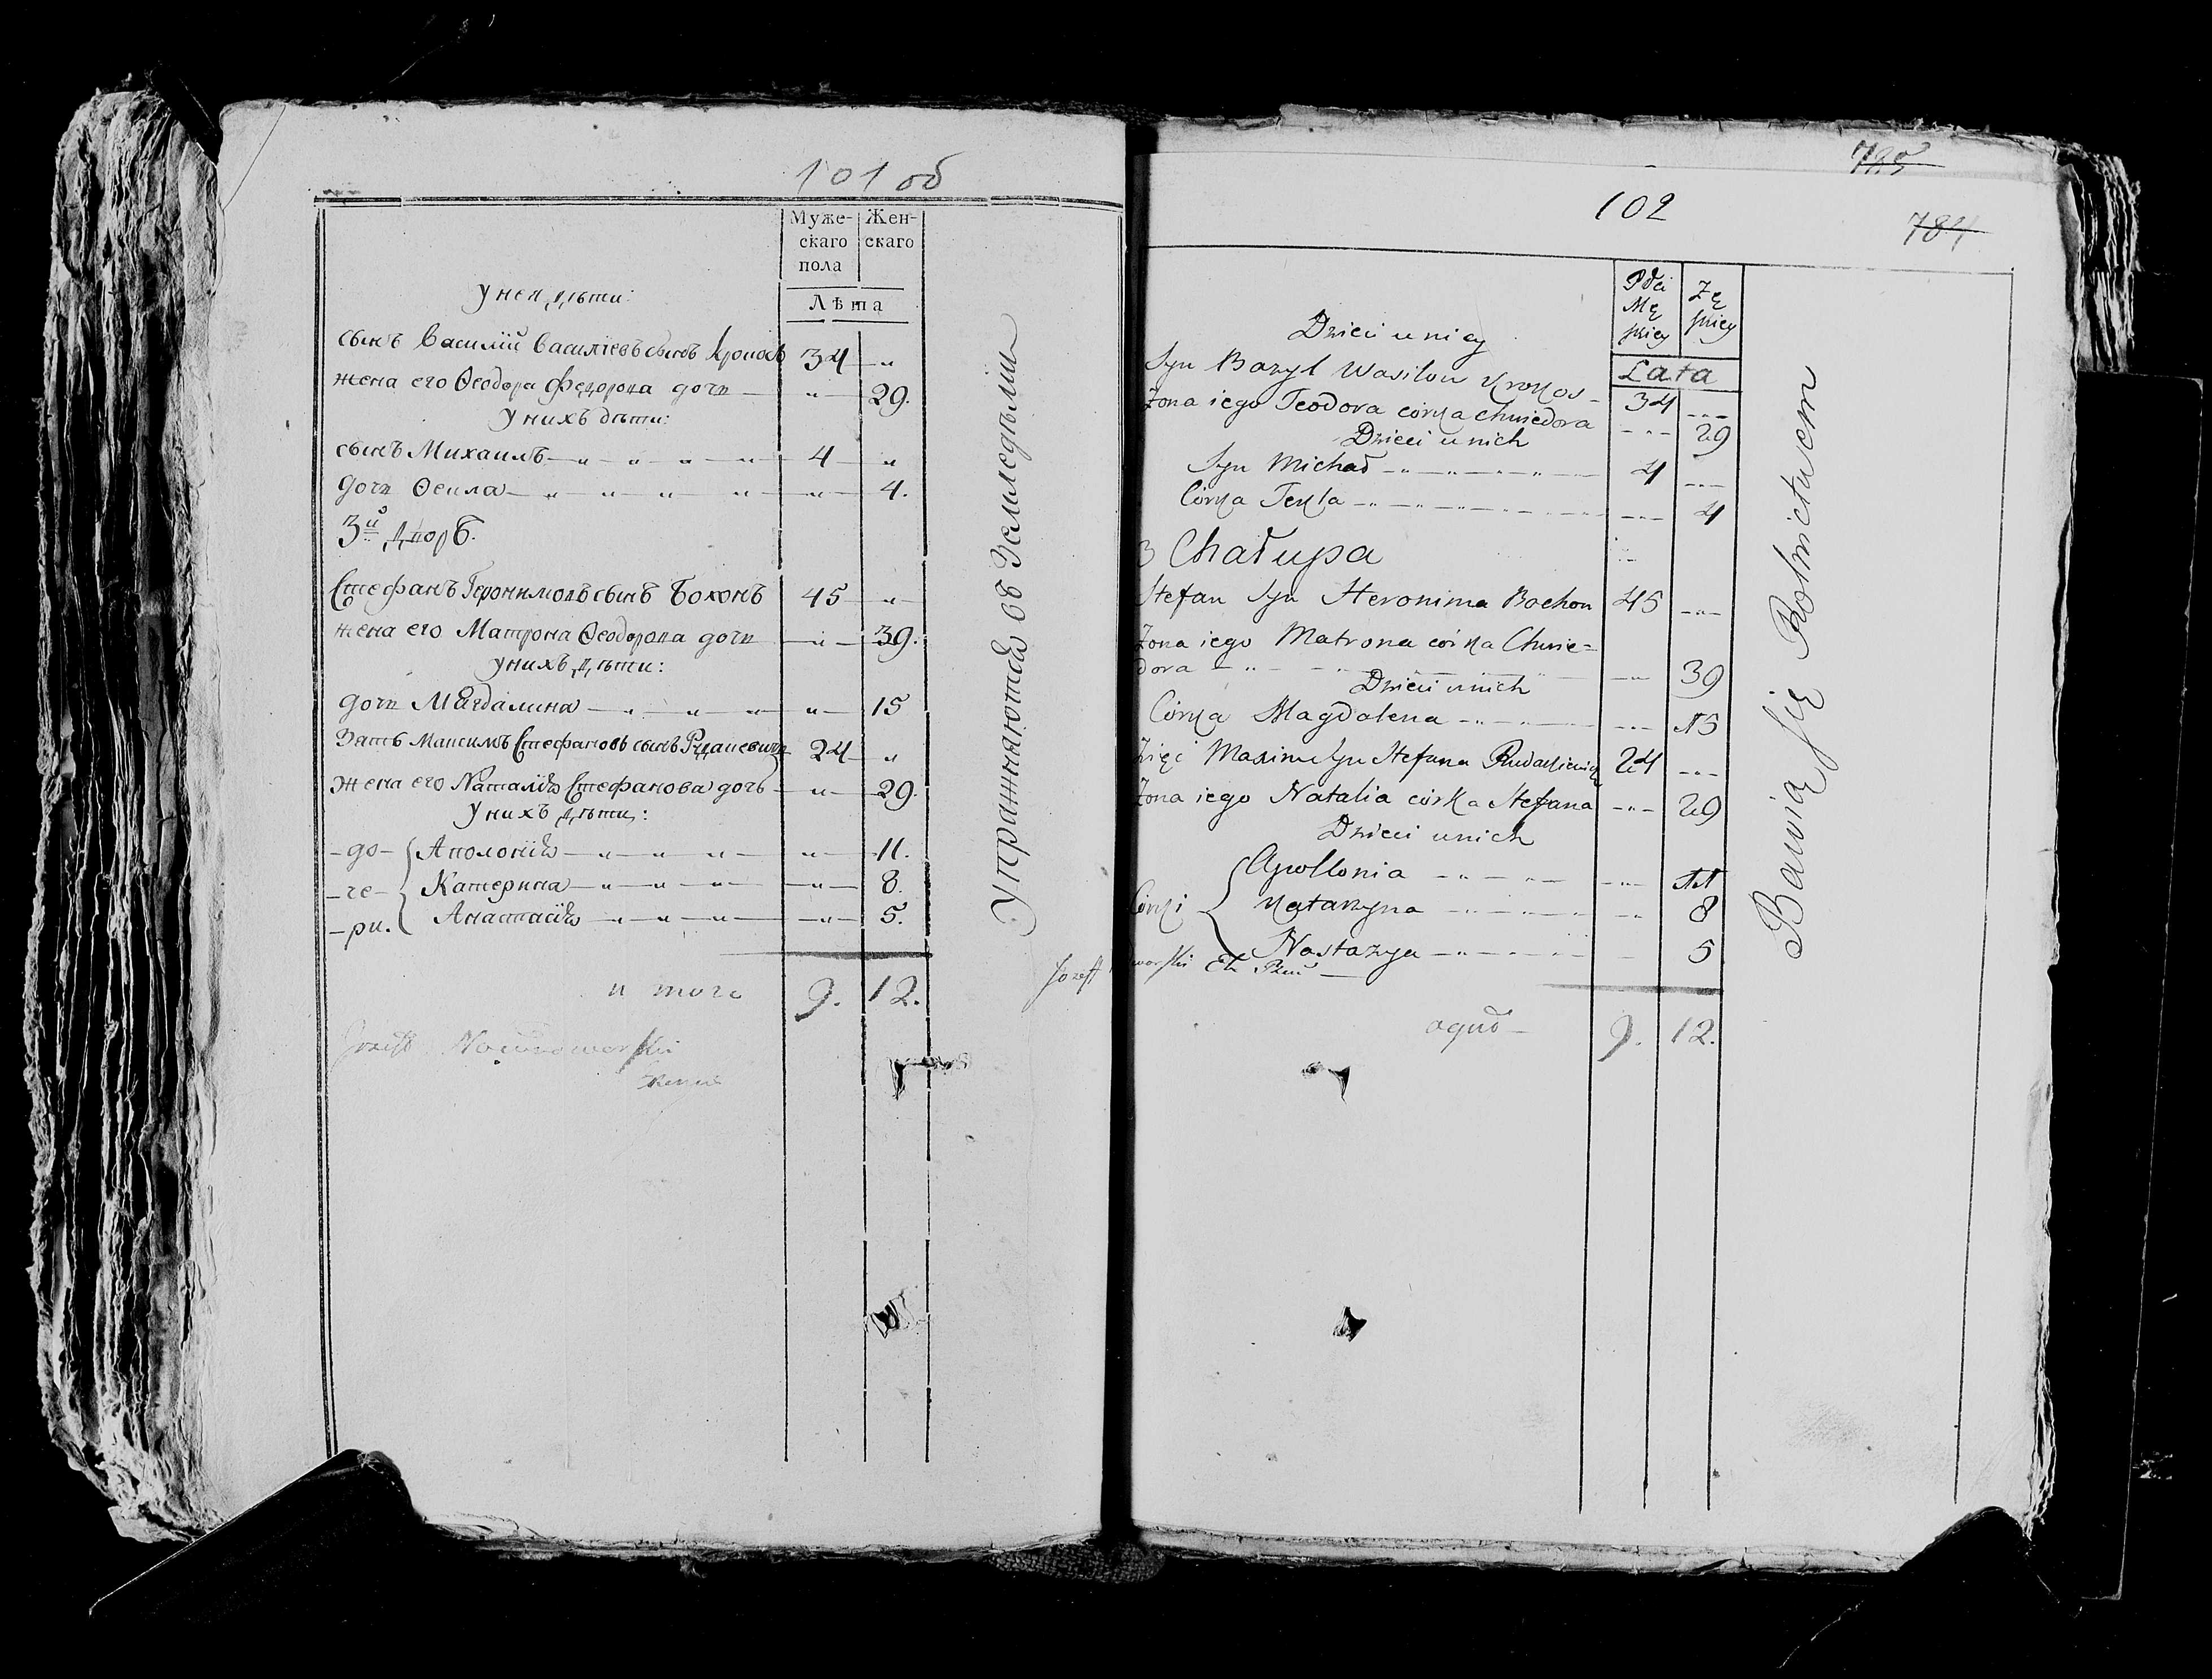 101 об
Муже-
скаго
пола
Жен-
скаго
Лѣта
у нея дѣти:
сынъ Василій Василіевъ сынъ 34 "
жена его Ѳеодора Федорова дочь " 29.
у нихъ дѣти:
сынъ Михаилъ 4 "
дочь Ѳекла " 4.
3й дворъ.
Стефанъ Геронимовъ сынъ Бохонъ 45 "
жена его Матрона Ѳеодорова дочь " 39.
у нихъ дѣти:
дочь Магдалина " 15
Зять Максимъ Стефановъ сынъ 24 "
жена его Наталія Стефанова дочь " 29.
у нихъ дѣти:
-до- Аполонія " 11.
-че- Катерина " 8.
-ри. Анастасія " 5.
итого 9. 12.
Упражняются въ Земледѣліи
102
785
784
Płci
Mę
skiey
Zę
skiey
Lata
Dzieci u niey
Syn Bazyl Wasilow Krokos 34 "
Zona iego Teodora córka Chwiedora " 29
Dzieci u nich
Syn Michał 4 "
Córka Tekla " 4
3 Chałupa
Stefan Syn Heronima Bochon 45 "
Zona iego Matrona córka Chwie=
dora " 39
Dzieci u nich
Córka Magdalena " 15
Zięć Maxim Syn Stefana 24 "
Zona iego Natalia córka Stefana " 29
Dzieci u nich
Apollonia " 11
Córki Katarzyna " 8
Nastazya " 5
Jozeff
9. 12.
Bawią się Rolnictwem